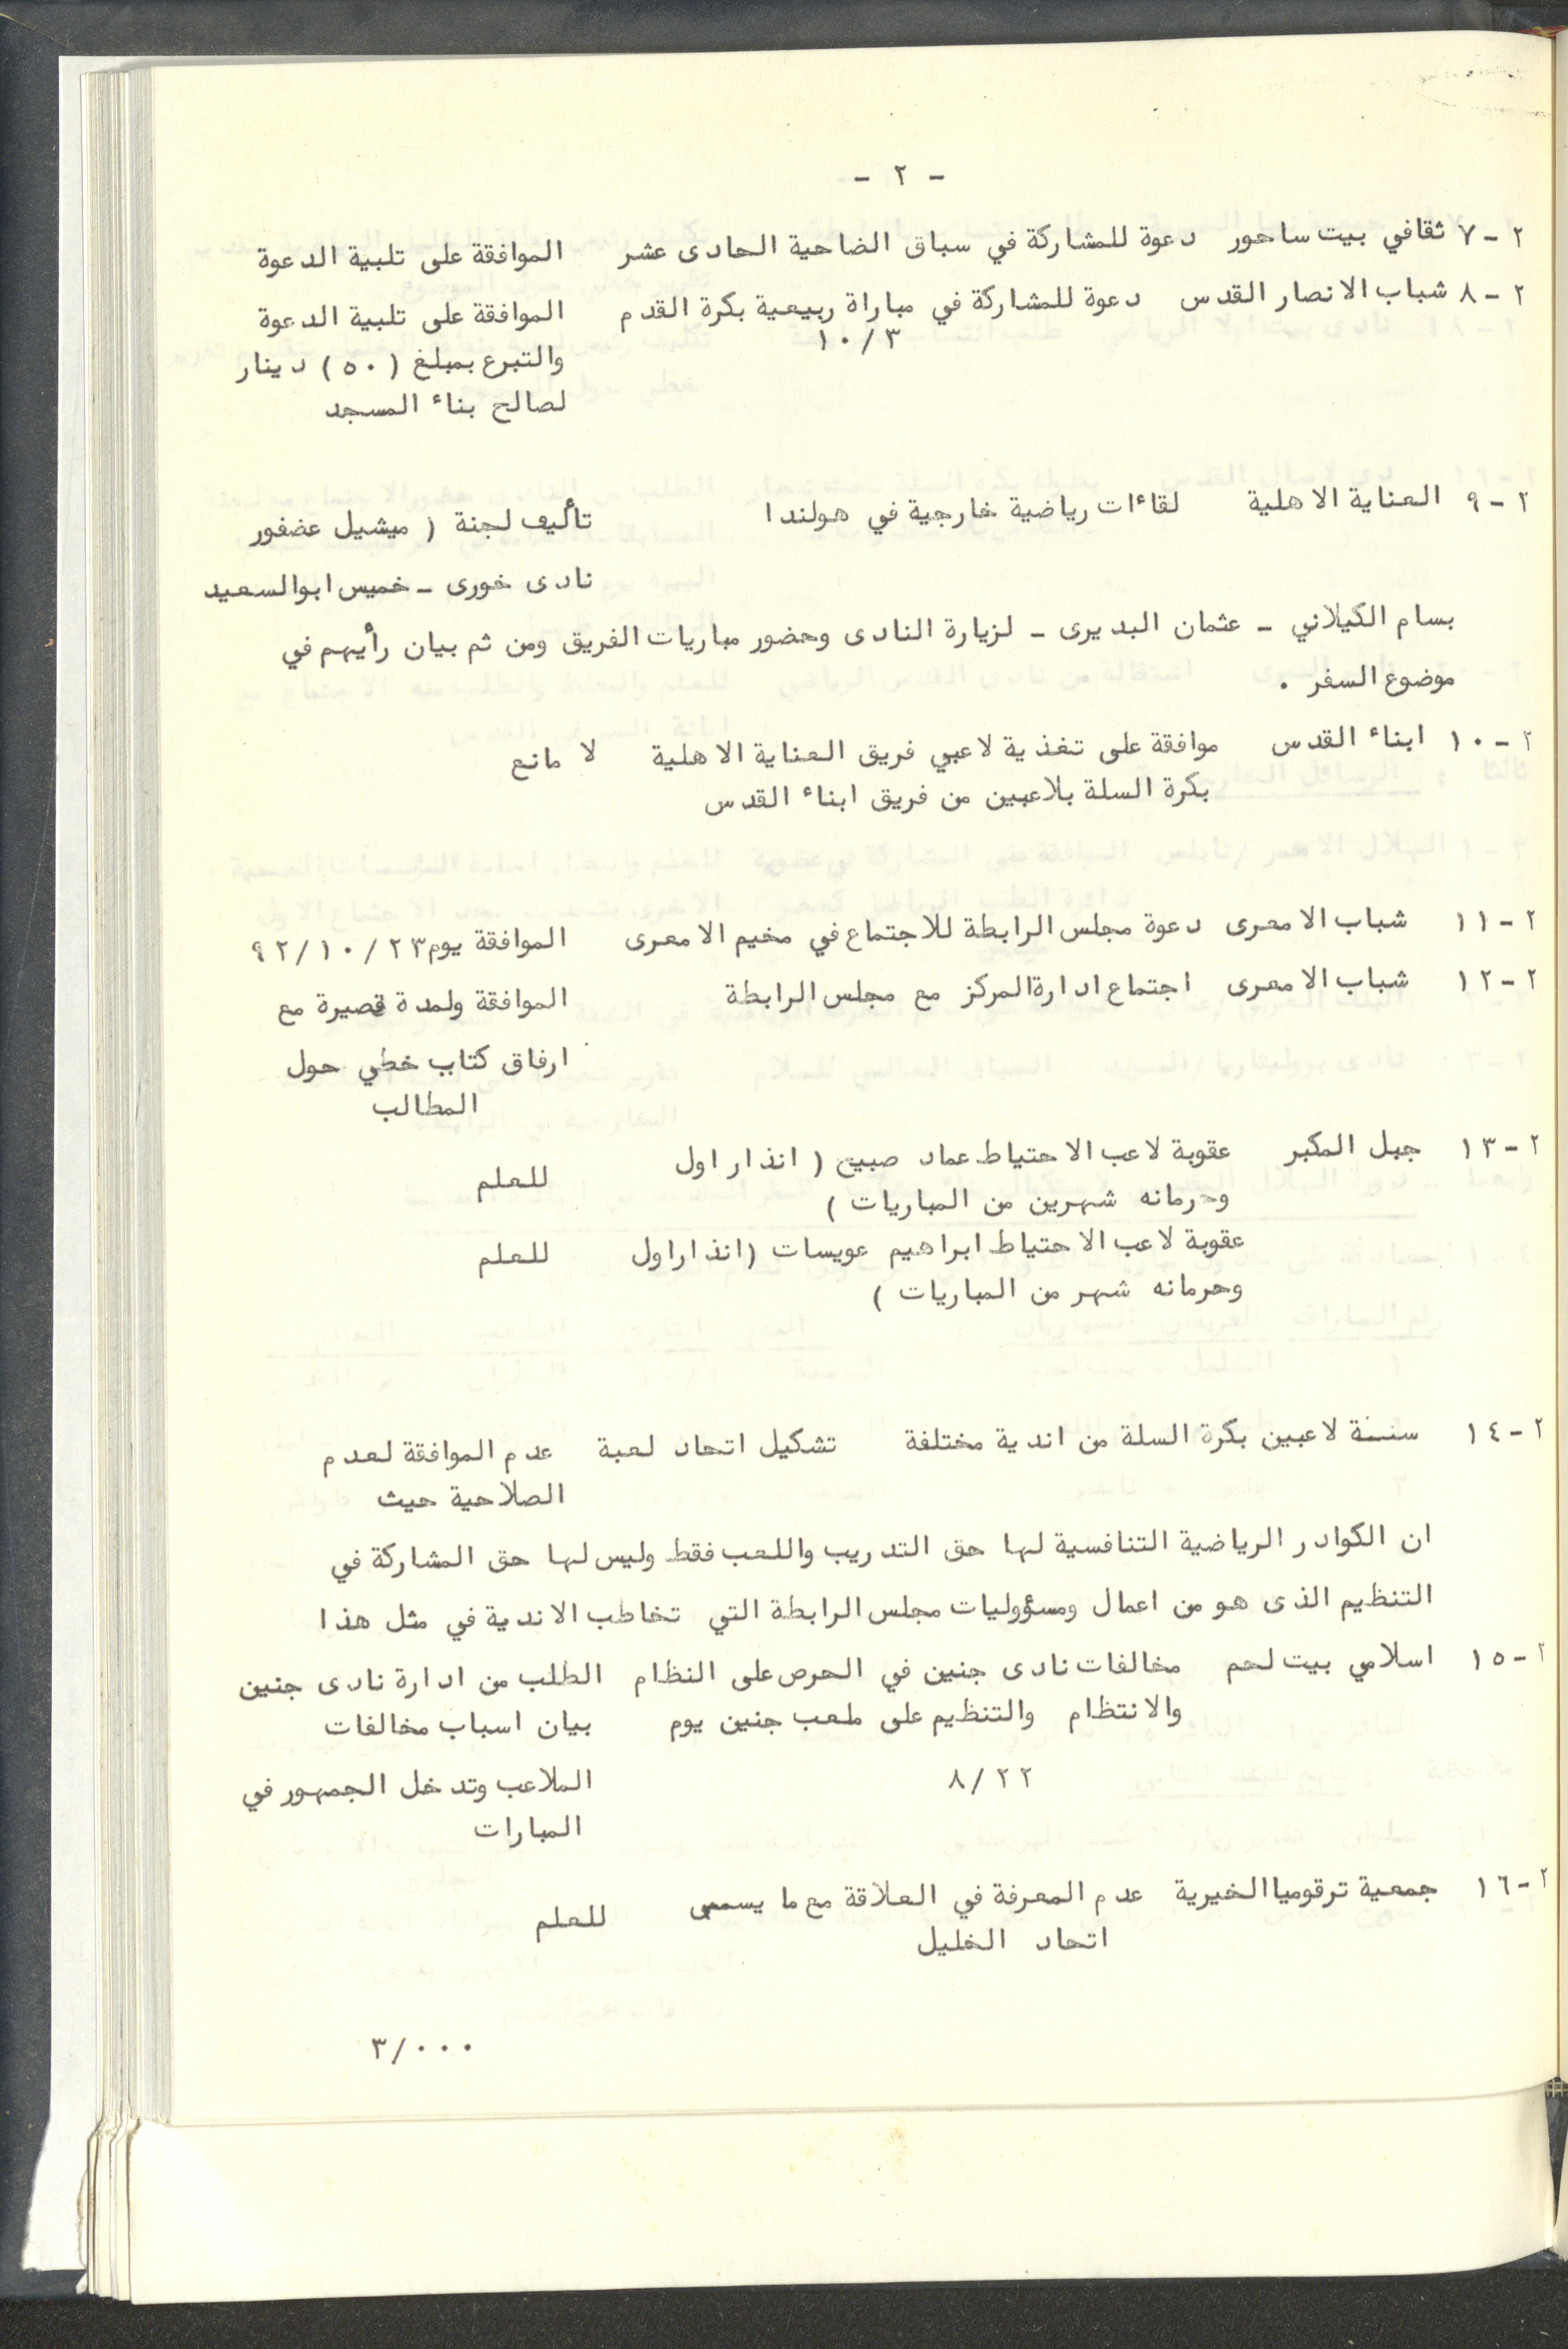 - ٢ -
٢-٧ ثقافي بيت ساحور دعوة للمشاركة في سباق الضاحية الحادى عشر الموافقة على تلبية الدعوة
٢-٨ شباب الانصار القدس دعوة للمشاركة في مباراة ربيعية بكرة القدم الموافقة على تلبية الدعوة
١٠/٣ والتبرع بمبلغ (٥٠) دينار
لصالح بناء المسجد
٢-٩ العناية الاهلية لقاءات رياضية خارجية في هولندا تأليف لجنة ( ميشيل عضفور
نادى خورى - خميس ابوالسعيد
بسام الكيلاني - عثمان البديرى - لزيارة النادى وحضور مباريات الفريق ومن ثم بيان رأيهم في
موضوع السفر .
٢-١٠ ابناء القدس موافقة على تغذية لاعبي فريق العناية الاهلية لا مانع
بكرة السلة بلاعبين من فريق ابناء القدس
٢-١١ شباب الامعرى دعوة مجلس الرابطة للاجتماع في مخيم الامعرى الموافقة يوم ٩٢/١٠/٢٣
٢-١٢ شباب الامعرى اجتماع ادارة المركز مع مجلس الرابطة الموافقة ولمدة قصيرة مع
ارفاق كتاب خطي حول
المطالب
٢-١٣ جبل المكبر عقوبة لاعب الاحتياط عماد صبيح ( انذار اول للعلم
وحرمانه شهرين من المباريات )
عقوبة لاعب الاحتياط ابراهيم عويسات (انذار اول للعلم
وحرمانه شهر من المباريات )
٢-١٤ ستة لاعبين بكرة السلة من اندية مختلفة تشكيل اتحاد لعبة عدم الموافقة لعدم
الصلاحية حيث
ان الكوادر الرياضية التنافسية لها حق التدريب واللعب فقط وليس لها حق المشاركة في
التنظيم الذى هو من اعمال ومسؤوليات مجلس الرابطة التي تخاطب الاندية في مثل هذا
٢-١٥ اسلامي بيت لحم مخالفات نادى جنين في الحرص على النظام الطلب من ادارة نادى جنين
والانتظام والتنظيم على ملعب جنين يوم بيان اسباب مخالفات
٨/٢٢ الملاعب وتدخل الجمهور في
المبارات
٢-١٦ جمعية ترقوميا الخيرية عدم المعرفة في العلاقة مع ما يسمى للعلم
اتحاد الخليل
٣/٠٠٠